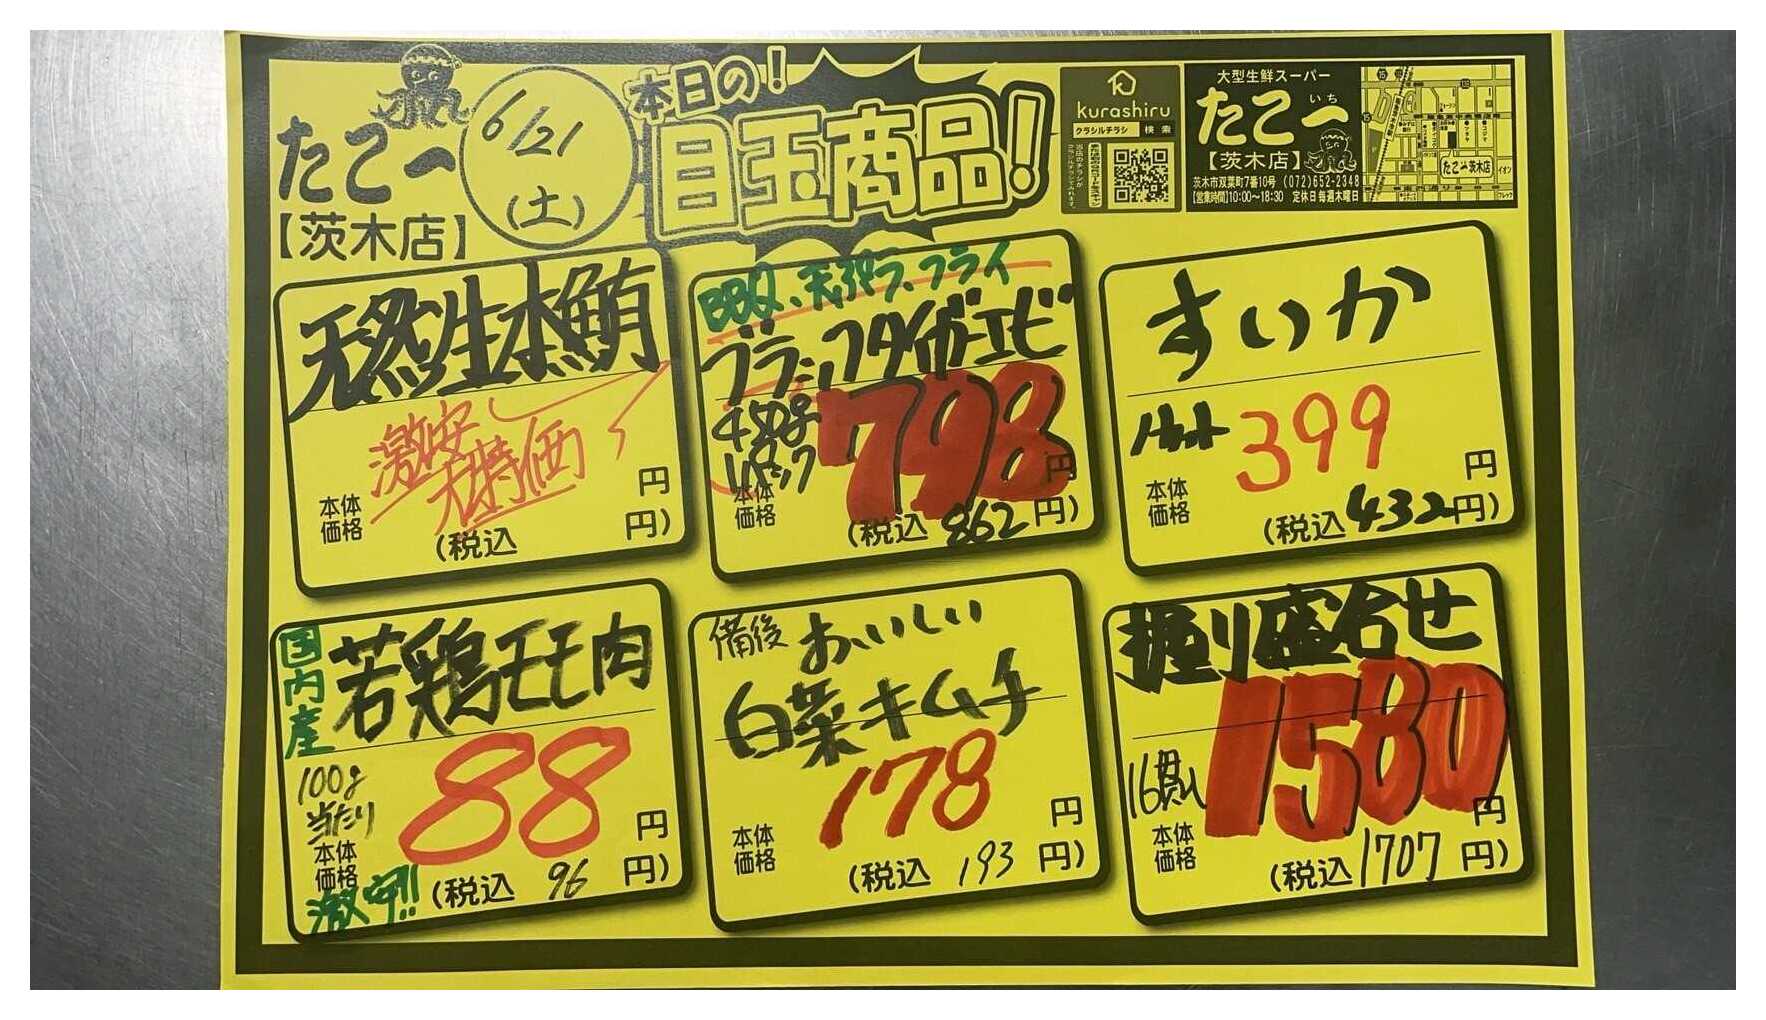 たこ一
【茨木店】
6/21
(土)
本日の!
目玉商品!
kurashiru
クラシルチラシ 検索
大型生鮮スーパー
たこ一
いち
【茨木店】
茨木市双葉町7番10号 (072)652-2348
【営業時間】10:00〜18:30 定休日 毎週木曜日
たこ一茨木店
イオン
天然生本鮪
激安
大特価
本体
価格
円
(税込 円)
BBQ、天ぷら、フライ
ブラックタイガーエビ
1パック
798
本体
価格
円
(税込 862円)
すいか
1カット
399
本体
価格
円
(税込 432円)
国内産
若鶏モモ肉
100g
当たり
88
本体
価格
円
激安!!
(税込 96 円)
備後 おいしい
白菜キムチ
178
本体
価格
円
(税込 193 円)
握り盛合せ
16貫入
1580
本体
価格
円
(税込 1707 円)